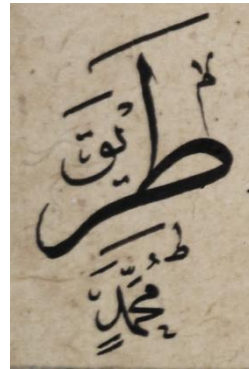 طريقَ
مُحَمَّدٍ